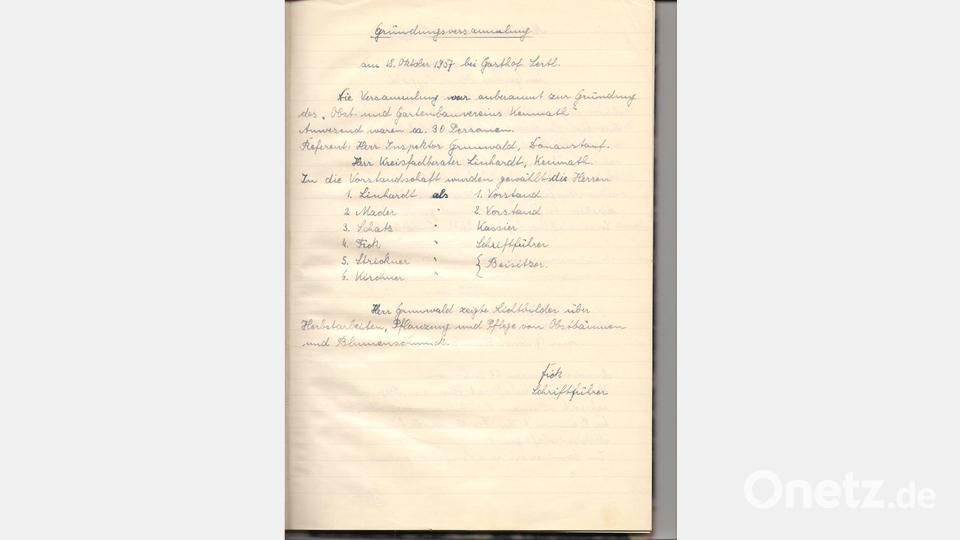 Gründungsversammlung
am 18. Oktober 1957 bei Gasthof Sertl.
Die Versammlung war anberaumt zur Gründung
des „Obst- und Gartenbauvereins Kemnath"
Anwesend waren ca. 30 Personen.
Referent: Herr Inspektor Grunwald, Donaustauf.
Herr Kreisfachberater Linhardt, Kemnath.
In die Vorstandschaft wurden gewählt die Herren
1. Linhardt als 1. Vorstand
2. Mader " 2. Vorstand
3. Schatz " Kassier
4. Fick " Schriftführer
5. Strickner " { Beisitzer.
6. Kirchner "
Herr Grunwald zeigte Lichtbilder über
Herbstarbeiten, Pflanzung und Pflege von Obstbäumen
und Blumenschmuck.
Fick
Schriftführer
Onetz.de